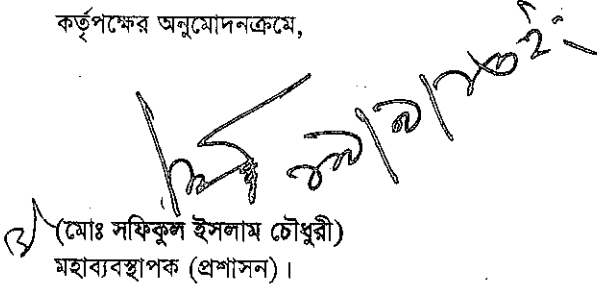 কর্তৃপক্ষের অনুমোদনক্রমে,
(মোঃ সফিকুল ইসলাম চৌধুরী)
মহাব্যবস্থাপক (প্রশাসন)।